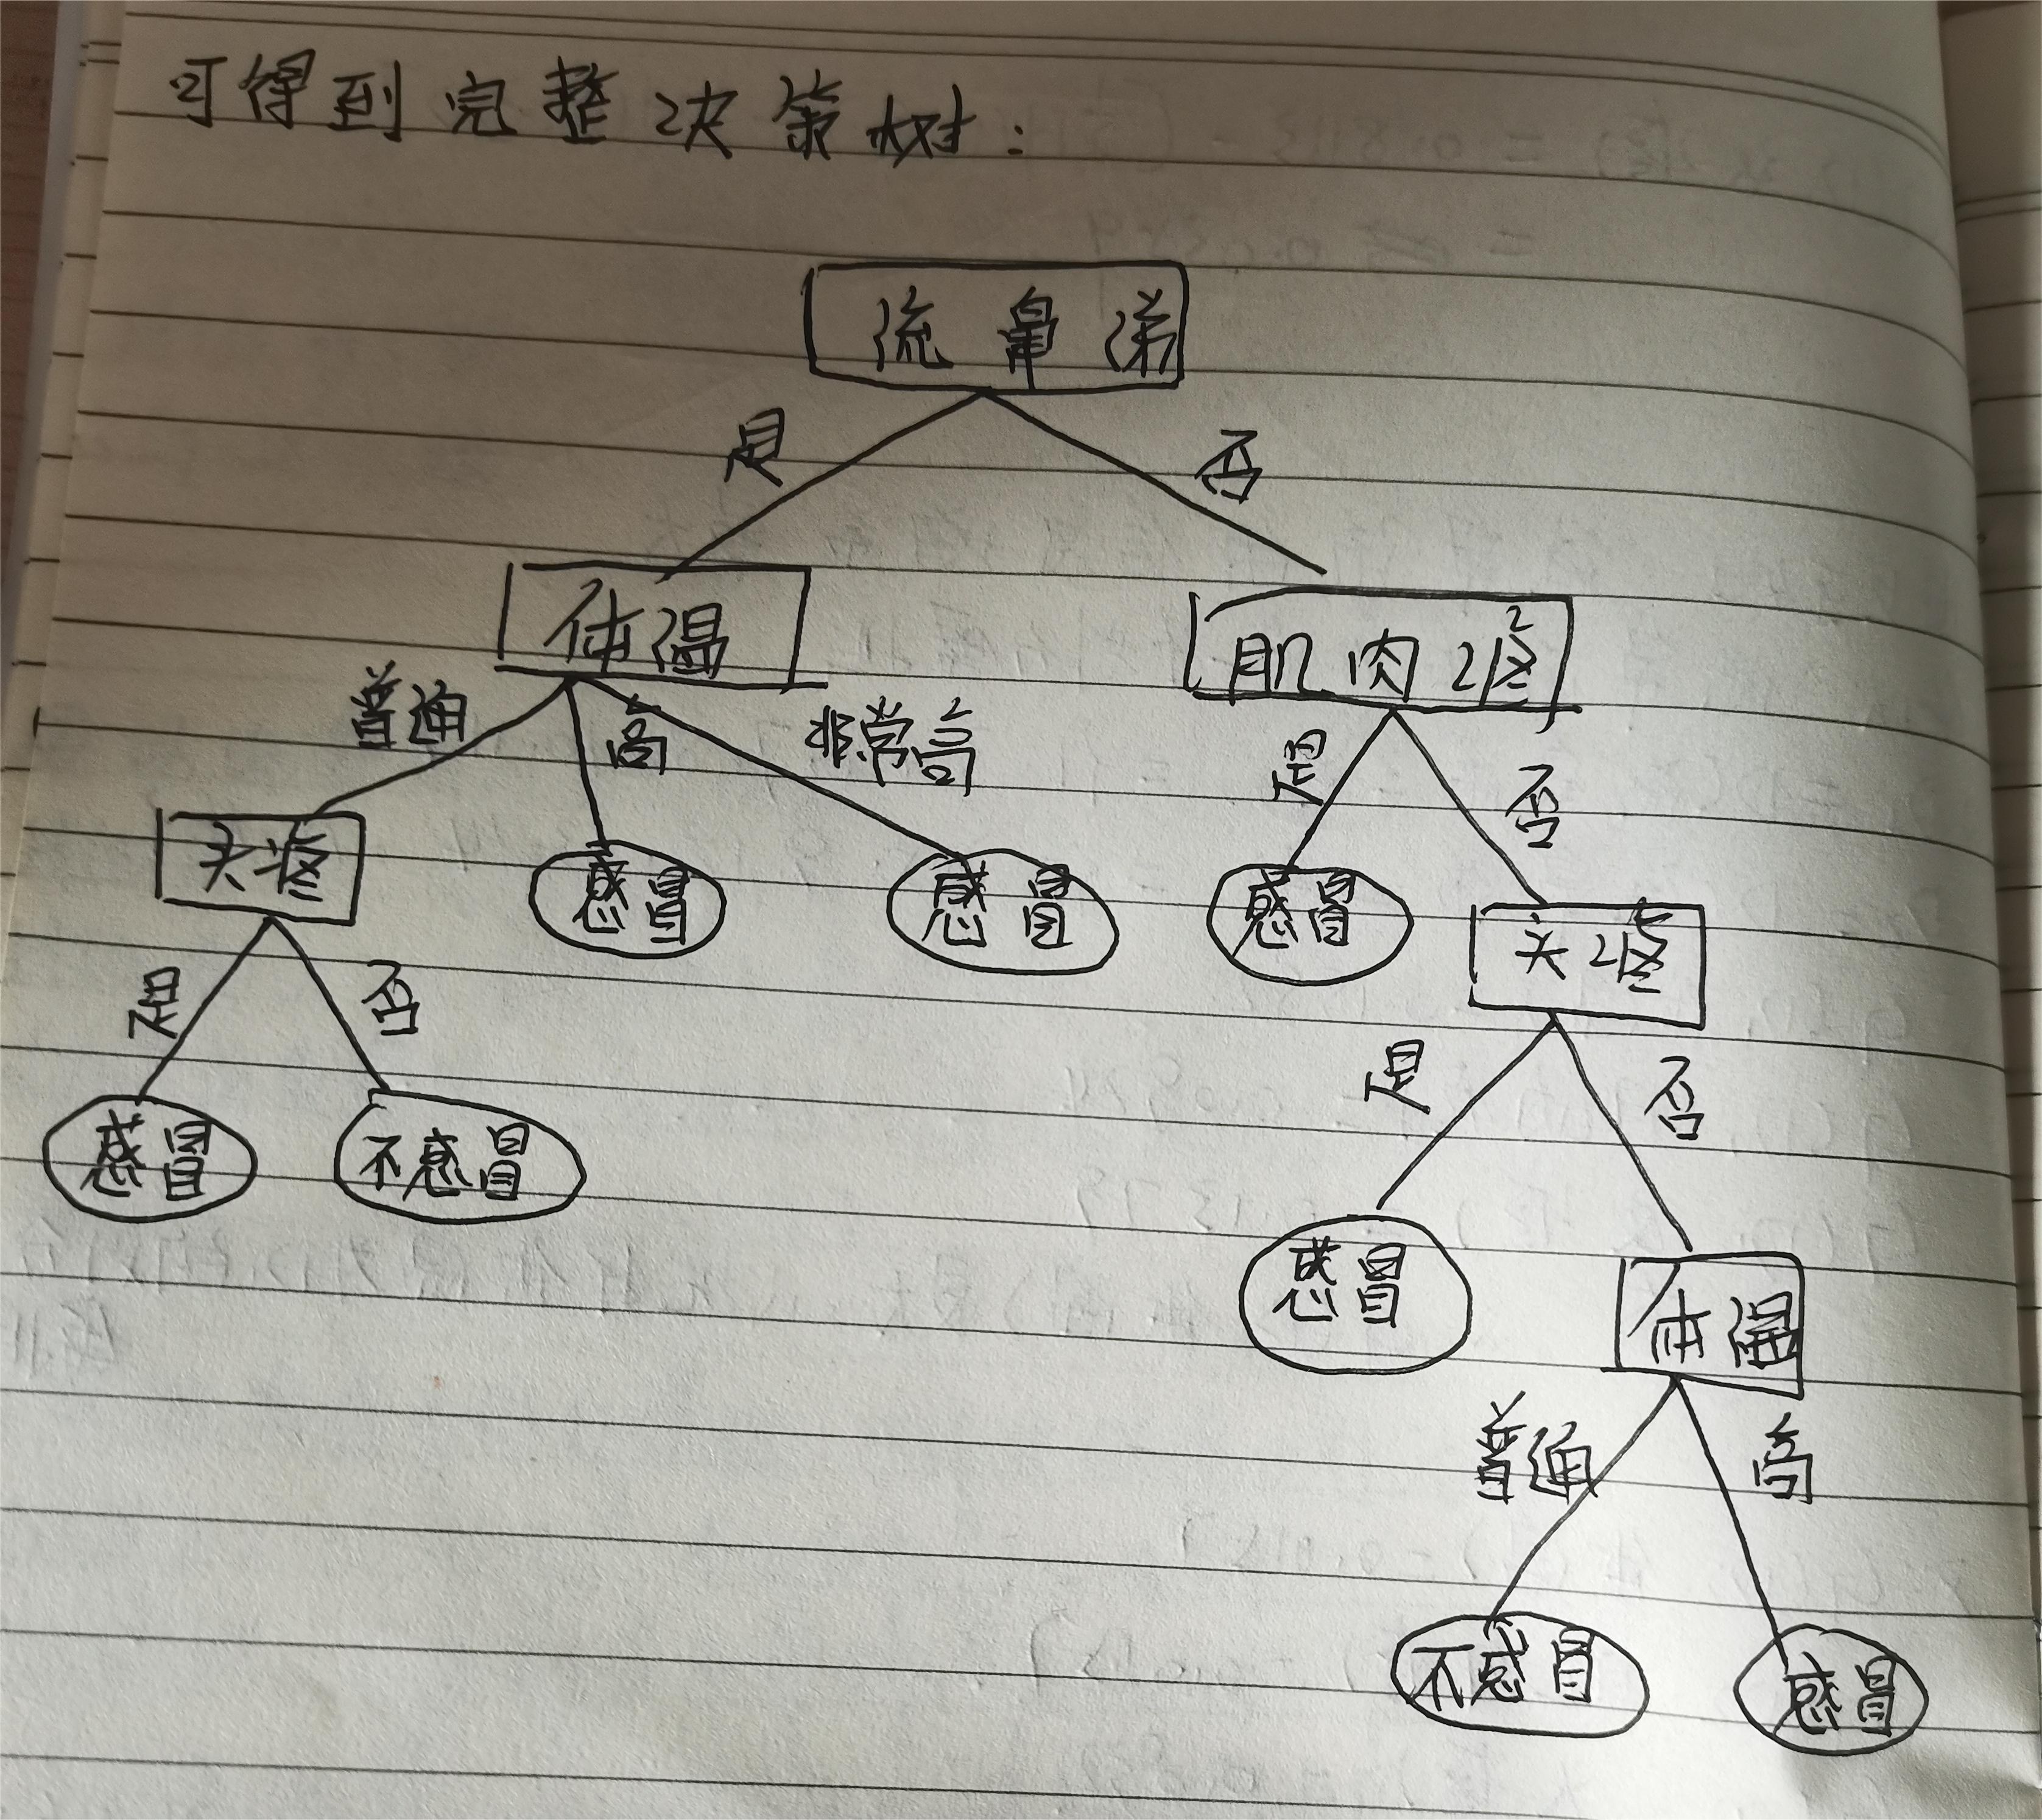 可得到完整决策树：
流鼻涕
是 否
体温 肌肉疼
普通 高 非常高 是 否
头疼 感冒 感冒 感冒 头疼
是 否 是 否
感冒 不感冒 感冒 体温
普通 高
不感冒 感冒